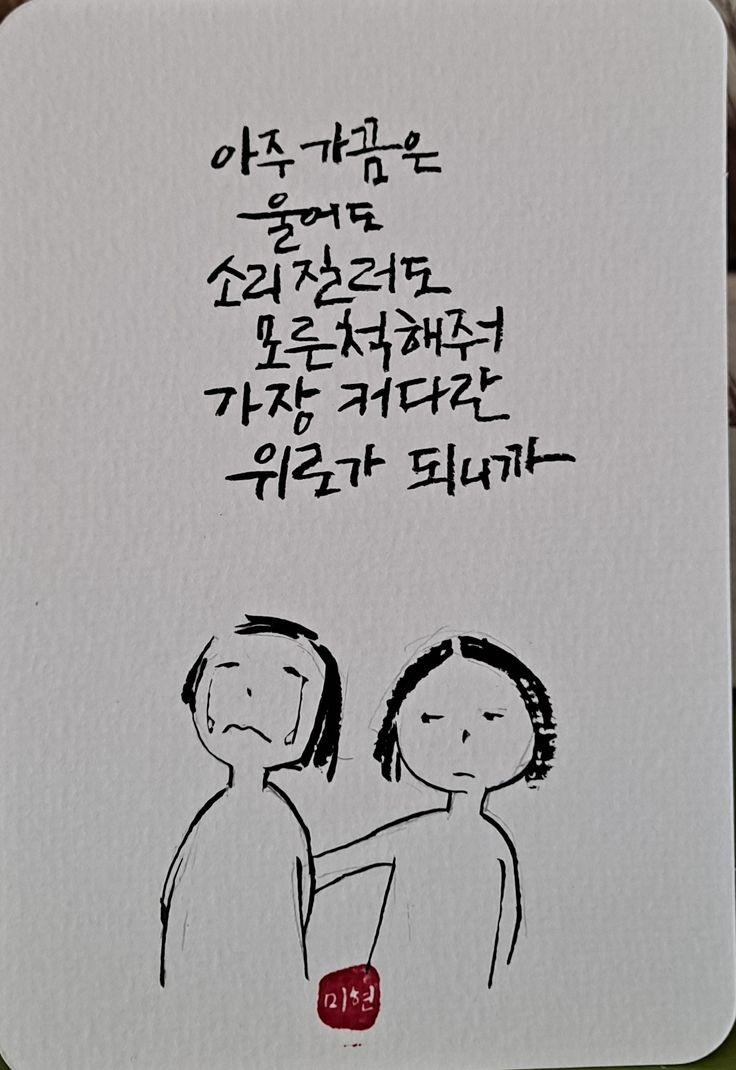 아주 가끔은
울어도
소리 질러도
모른척해줘
가장 커다란
위로가 되니까
미현